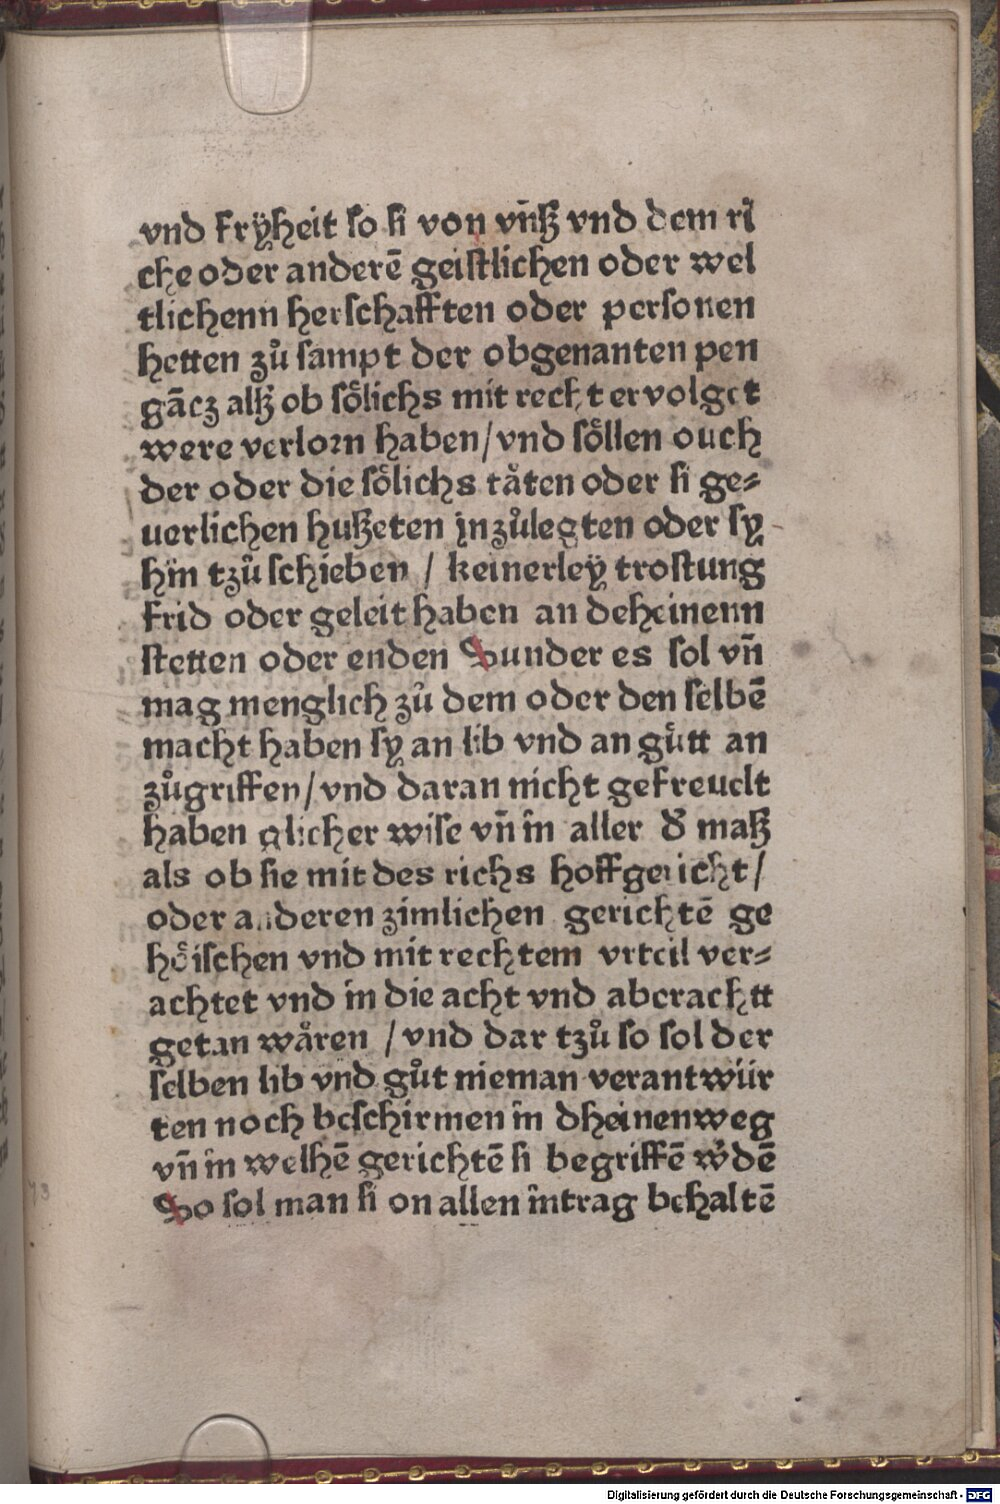 vnd frÿheit so si von vn̄ß vnd dem ri
che oder anderē geistlichen oder wel
tlichenn herschafften oder personen
hetten zů sampt der obgenanten pen
gācz alß ob sölichs mit recht ervolget
were verlorn haben/vnd söllen ouch
der oder die sölichs tåten oder si ge⸗
uerlichen hußeten jnzůlegten oder sy
hin tzů schieben / keinerleÿ trostung
frid oder geleit haben an deheinenn
stetten oder enden Sunder es sol vn̄
mag menglich zů dem oder den selbē
macht haben sy an lib vnd an gůtt an
zůgriffen/vnd daran nicht gefreuelt
haben glicher wise vn̄ in aller d̕ maß
als ob sie mit des richs hoffgericht/
oder anderen zimlichen gerichtē ge
höischen vnd mit rechtem vrteil ver⸗
achtet vnd in die acht vnd aberachtt
getan wåren /vnd dar tzů so sol der
selben lib vnd gůt nieman verantwür
ten noch beschirmen in dheinenweg
vn̄ in welhē gerichtē si begriffē w̕dē
So sol man si on allen intrag behaltē
Digitalisierung gefördert durch die Deutsche Forschungsgemeinschaft - DFG